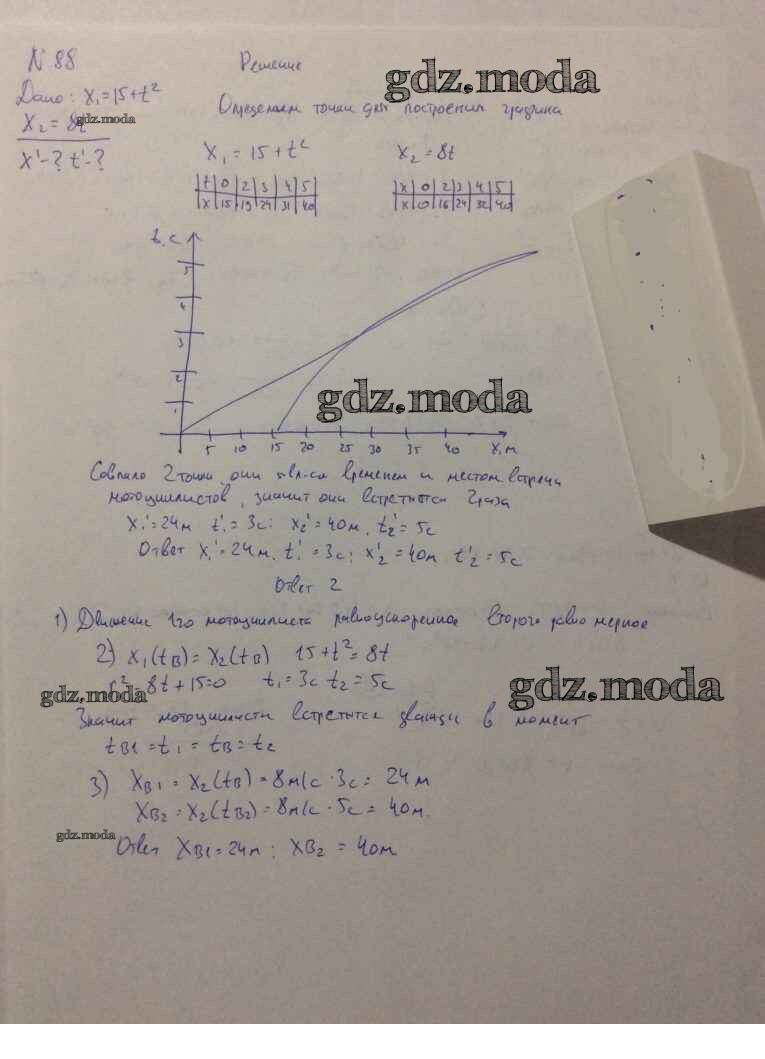 N 88
Решение
gdz.moda
Дано: x₁=15+t²
Определяем точки для построения графика
x₂ = 8t
gdz.moda
x'-? t'-?
x₁ = 15 + t²
x₂ = 8t
t 0 2 3 4 5
x 15 19 24 31 40
x 0 2 3 4 5
x 0 16 24 32 40
t, c
5
4
3
2
1
gdz.moda
5 10 15 20 25 30 35 40 x, м
Совпало 2 точки, они явл-ся временем и местом встречи
мотоциклистов, значит они встретятся 2 раза
x₁'=24м t₁'=3c; x₂'=40м, t₂'=5c
Ответ x₁'=24м, t₁'=3c; x₂'=40м t₂'=5c
Ответ 2
1) Движение 1го мотоциклиста равноускоренное второго равномерное
2) x₁(tв)=x₂(tв) 15+t²=8t
t²-8t+15=0 t₁=3c t₂=5c
gdz.moda
gdz.moda
Значит мотоциклисты встретятся дважды в момент
tв1=t₁=tв=t₂
3) xв1=x₂(tв)=8м/c·3c=24м
xв2=x₂(tв2)=8м/c·5c=40м.
gdz.moda
Ответ xв1=24м; xв2=40м